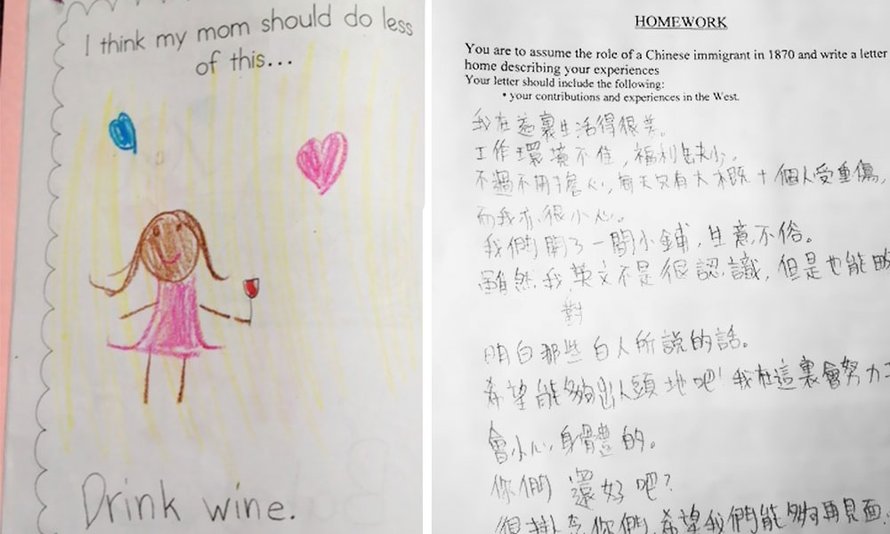 I think my mom should do less
of this...
Drink wine.
HOMEWORK
You are to assume the role of a Chinese immigrant in 1870 and write a letter
home describing your experiences
Your letter should include the following:
• your contributions and experiences in the West.
我在這裏生活得很。
工作環境不佳，福利缺少。
不過不用擔心，每天只有大概十個人受重傷，
而我亦很小心。
我們開了一間小鋪，生意不俗。
雖然我英文不是很認識，但是也能
對
明白那些白人所說的話。
希望能夠出人頭地吧！我在這裏會努力
會小心身體的。
你們還好吧？
很掛念你們，希望我們能夠再見面